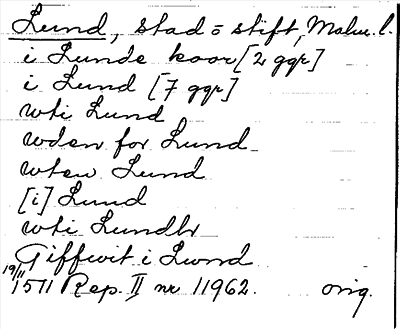 Lund, stad o stift, Malm. l.
i Lunde koor [2 ggr]
i Lund [7 ggr]
wti Lund
wden for Lund
wten Lund
[i] Lund
wti Lundh
Giffwit i Lwnd
19/11 1511 Rep. II nr 11962. orig.